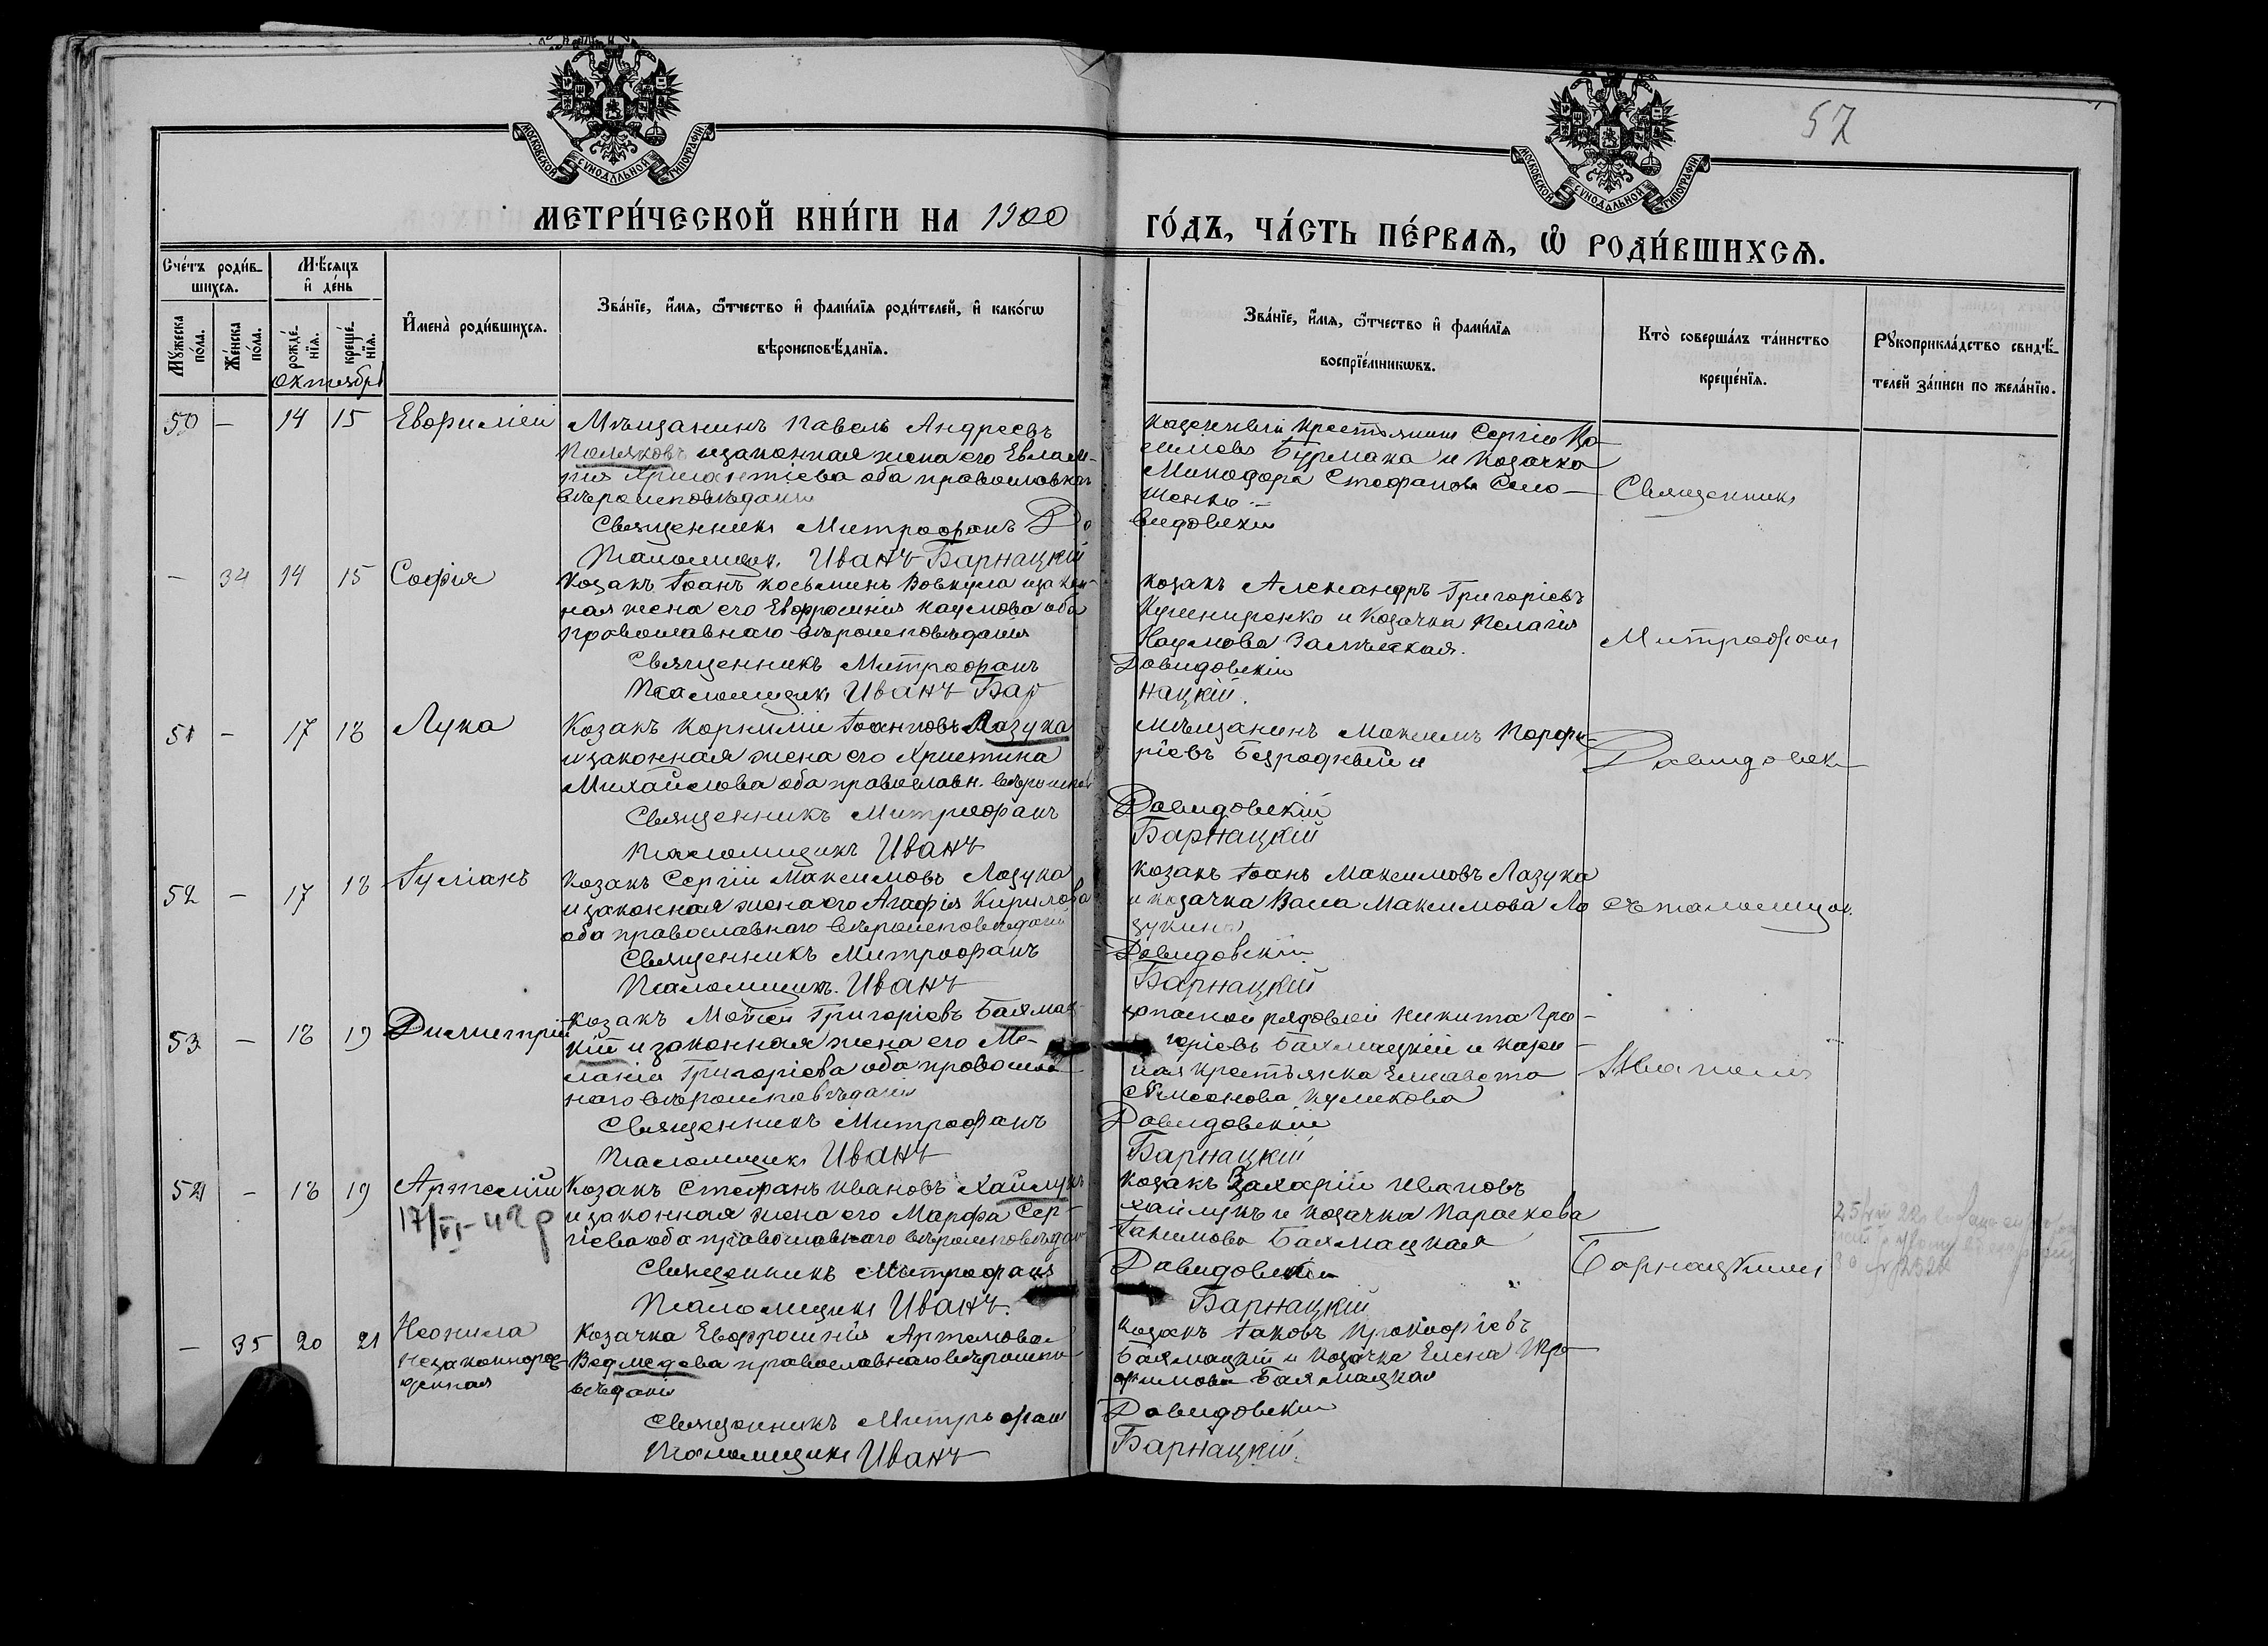 57
МОСКОВСКОЙ СУНОДАЛЬНОЙ ТИПОГРАФІИ.
МОСКОВСКОЙ СУНОДАЛЬНОЙ ТИПОГРАФІИ.
МЕТРИ́ЧЕСКОЙ КНИ́ГИ НА 1900 ГО́ДЪ, ЧА́СТЬ ПЕ́РВАѦ, Ѽ РОДИ́ВШИХСѦ.
Сче́тъ роди́в-
шихсѧ.
Мѣ́сѧцъ
и҆ де́нь
Мꙋ́жеска по́ла.
Же́нска по́ла.
рожде́-нїѧ.
креще́-нїѧ.
октябрь
И҆мена̀ роди́вшихсѧ.
Зва́нїе, и҆́мѧ, ѻ҆́тчество и҆ фами́лїѧ роди́телей, и҆ како́гѡ
вѣроисповѣ́данїѧ.
Зва́нїе, и҆́мѧ, ѻ҆́тчество и҆ фами́лїѧ
воспрїе́мникѡвъ.
Кто̀ соверша́лъ та́инство
креще́нїѧ.
Рꙋкоприкла́дство свидѣ́-
телей за́писи по жела́нїю.
50 – 14 15 Евфимій
Мѣщанинъ Павелъ Андреевъ
Поляковъ и законная жена его Евлам-
пія оба православн
вѣроисповѣданія
Священникъ Митрофанъ До
Псаломщик. Иванъ Барнацкій
Казенный крестьянинъ Сергій
Бурмака и козачка
Минодора Стефанова Село-
женко
видовскій
Священникъ
– 34 14 15 Софія
Козакъ Іоанъ Косьминъ Вовкула и закон-
ная жена его Евфросинія Наумова оба
православнаго вѣроисповѣданія
Священникъ Митрофанъ
Псаломщикъ Иванъ Бар
Козакъ Александръ Григоріевъ
Кушниренко и козачка Пелагія
Наумова
Довидовскій
нацкій.
Митрофан
51 – 17 18 Лука
Козакъ Корнилій Іоанновъ Лазука
и законная жена его Христина
Михайлова оба православн. вѣроиспов
Священникъ Митрофанъ
Псаломщикъ Иванъ
Мѣщанинъ Максимъ Порфи-
ріевъ Безродный и
Довидовскій
Барнацкій
Давидовск
52 – 17 18 Іуліанъ
Козакъ Сергій Максимовъ Лазука
и законная жена его Агафія Кирилова
оба православнаго вѣроисповѣданій
Священникъ Митрофанъ
Псаломщик. Иванъ
Козакъ Іоанъ Максимовъ Лазука
и козачка Васса Максимова Ла
зукина
Довидовскій
Барнацкій
съ псаломщик.
53 – 18 19 Димитрій
Козакъ Мойсей Григоріевъ Бахмац-
кій и законная жена его Ме-
ланія Григорієва оба православ
наго вѣроисповѣданія
Священникъ Митрофанъ
Псаломщикъ Иванъ
Запасной рядовой Никита Гри-
горіевъ Бахмацкій и казен-
ная крестьянка Елисавета
Симеонова Куликова
Довидовскій
Барнацкій
Иваномъ
54 – 18 19 Артемій
17/VI-42 р
Козакъ Стефанъ Ивановъ Хайлукъ
и законная жена его Марфа Сер-
гіева оба православнаго вѣроисповѣдан
Священникъ Митрофанъ
Псаломщикъ Иванъ.
Козакъ Захарій Ивановъ
Хайлукъ и козачка Параскева
Бахмацкая
Давидовскій
Барнацкій
Барнацкимъ
– 35 20 21 Неонила
незаконнорож-
денная
Козачка Евфросинія Артемова
Ведмедева православнаго вѣроиспо-
вѣданія
Священникъ Митрофан
Псаломщикъ Иванъ
Козакъ Іаковъ Прокофіевъ
Бахмацкій и козачка Елена Тро-
фимова Бахмацкая
Довидовскій
Барнацкій.